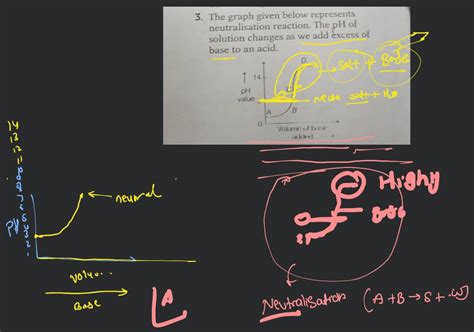 3. The graph given below represents
neutralisation reaction. The pH of
solution changes as we add excess of
base to an acid.
14
pH
value
0
A
B
D
Volume of base
added
→ Salt + Base
neutr salt + H₂O
14
13
12
11
10
9
8
7
6
5
4
3
2
1
PH
neutral
Base
A
Highly
Base
Neutralisation (A+B → S + W)